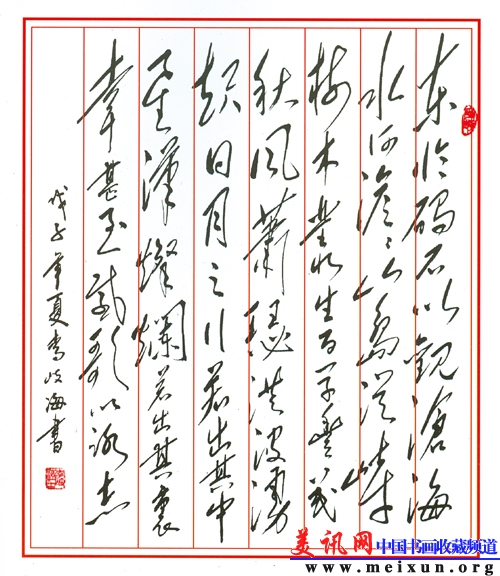 东临碣石以觀滄海
水何澹澹山島竦峙
树木叢生百草豐茂
秋风蕭瑟洪波湧
起日月之行若出其中
星漢燦爛若出其裏
幸甚至哉歌以詠志
戊子年夏李岐海書
美讯网中国书画收藏频道
www.meixun.org